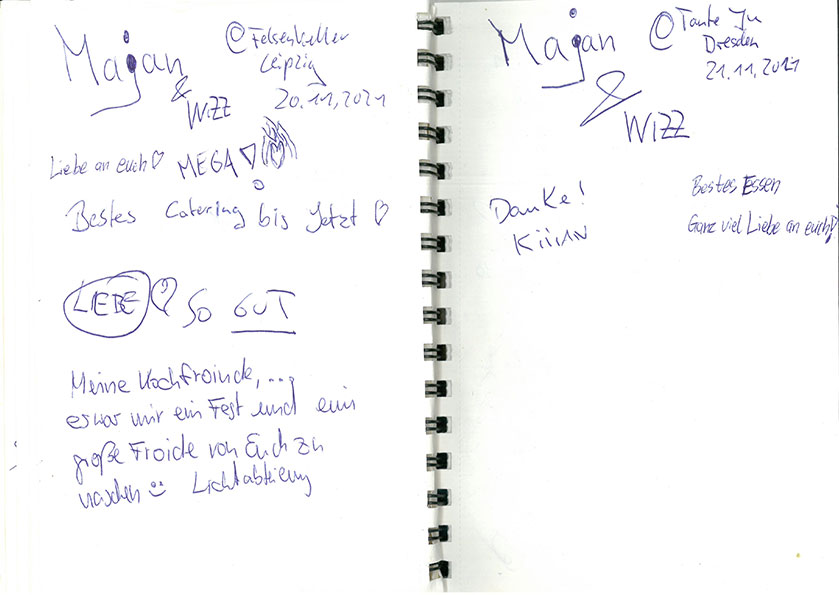 Majan
@ Felsenkeller
Leipzig
20.11.2021
& WIZZ
Liebe an euch♡ MEGA!
Bestes Catering bis Jetzt ♡
LIEBE SO GUT
Meine Kochfroinde,...
es war mir ein Fest und ein
große Froide von Euch zu
naschen Licht
Majan
@ Tante Ju
Dresden
21.11.2021
& WIZZ
Bestes Essen
Danke!
Ganz viel Liebe an euch♡